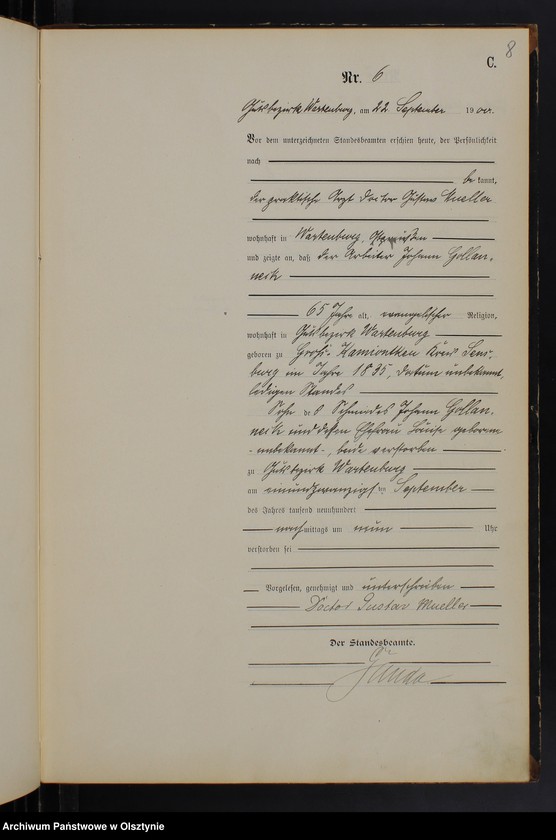 8
C.
Nr. 6
Gutsbezirk Wartenburg, am 22 September 1900.
Vor dem unterzeichneten Standesbeamten erschien heute, der Persönlichkeit
nach
be kannt,
der praktische Arzt Doctor Gustav Mueller
wohnhaft in Wartenburg, Ostpreußen
und zeigte an, daß der Arbeiter Johann Gollan-
neck
65 Jahre alt, evangelischer Religion,
wohnhaft in Gutsbezirk Wartenburg
geboren zu Groß-Kamionken Kreis Sens-
burg im Jahre 1835, Datum unbekannt,
ledigen Standes
Sohn des Schmiedes Johann Gollan-
neck und dessen Ehefrau Louise geborene
-unbekannt-, beide verstorben
zu Gutsbezirk Wartenburg
am einundzwanzigsten September
des Jahres tausend neunhundert
nachmittags um neun Uhr
verstorben sei
Vorgelesen, genehmigt und unterschrieben
Doctor Gustav Mueller
Der Standesbeamte.
Archiwum Państwowe w Olsztynie